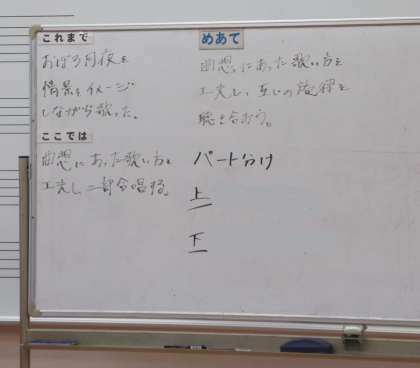 これまで
おぼろ月夜を
情景をイメージ
しながら歌った。
ここでは
曲想にあった歌い方を
工夫し二部合唱する。
めあて
曲想にあった歌い方を
工夫し、互いの旋律を
聴き合おう。
パート分け
上
下